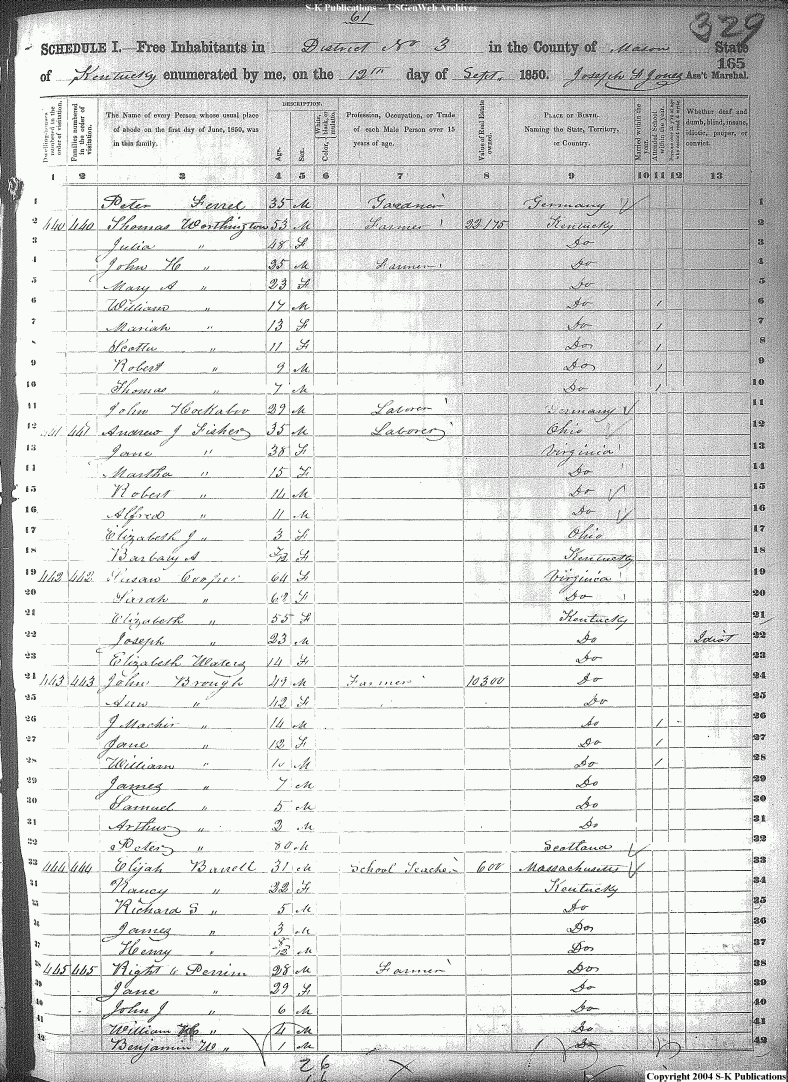 S-K Publications -- USGenWeb Archives
61
329
SCHEDULE I.—Free Inhabitants in District No 3 in the County of Mason State
165
of Kentucky enumerated by me, on the 12th day of Sept. 1850. Joseph F Jones Ass't Marshal.
Dwelling-houses numbered in the order of visitation.
Families numbered in the order of visitation.
The Name of every Person whose usual place of abode on the first day of June, 1850, was in this family.
DESCRIPTION.
Age.
Sex.
Color, White, black, or mulatto.
Profession, Occupation, or Trade of each Male Person over 15 years of age.
Value of Real Estate owned.
PLACE OF BIRTH. Naming the State, Territory, or Country.
Married within the year.
Attended School within the year.
Whether deaf and dumb, blind, insane, idiotic, pauper, or convict.
1 2 3 4 5 6 7 8 9 10 11 12 13
1 Peter Ferrel 35 M Gardner Germany 1
2 440 440 Thomas Worthington 53 M Farmer 22175 Kentucky 2
3 Julia " 48 F Do 3
4 John H " 25 M Farmer Do 4
5 Mary A " 23 F Do 5
6 William " 17 M Do 1 6
7 Mariah " 13 F Do 1 7
8 Scotta " 11 F Do 1 8
9 Robert " 9 M Do 1 9
10 Thomas " 7 M Do 1 10
11 John Hockaboo 29 M Laborer Germany 11
12 441 441 Andrew J Fisher 35 M Laborer Ohio 12
13 Jane " 38 F Virginia 13
14 Martha " 15 F Do 14
15 Robert " 14 M Do 15
16 Alfred " 11 M Do 16
17 Elizabeth J " 3 F Ohio 17
18 Barbary A F Kentucky 18
19 442 442 Susan Cooper 64 F Virginia 19
20 Sarah " 62 F Do 20
21 Elizabeth " 55 F Kentucky 21
22 Joseph " 23 M Do Idiot 22
23 Elizabeth Waters 14 F Do 23
24 443 443 John Brough 49 M Farmer 10300 Do 24
25 Ann " 42 F Do 25
26 J Machir " 14 M Do 1 26
27 Jane " 12 F Do 1 27
28 William " 10 M Do 1 28
29 James " 7 M Do 29
30 Samuel " 5 M Do 30
31 Arthur " 2 M Do 31
32 Peter " 80 M Scotland 32
33 444 444 Elijah Barrell 31 M School Teacher 600 Massachusetts 33
34 Nancy " 22 F Kentucky 34
35 Richard S " 5 M Do 35
36 James " 3 M Do 36
37 Henry " M Do 37
38 445 445 Right G Perrine 28 M Farmer Do 38
39 Jane " 29 F Do 39
40 John J " 6 M Do 40
41 William H " 4 M Do 41
42 Benjamin W " 1 M Do 42
26
Copyright 2004 S-K Publications